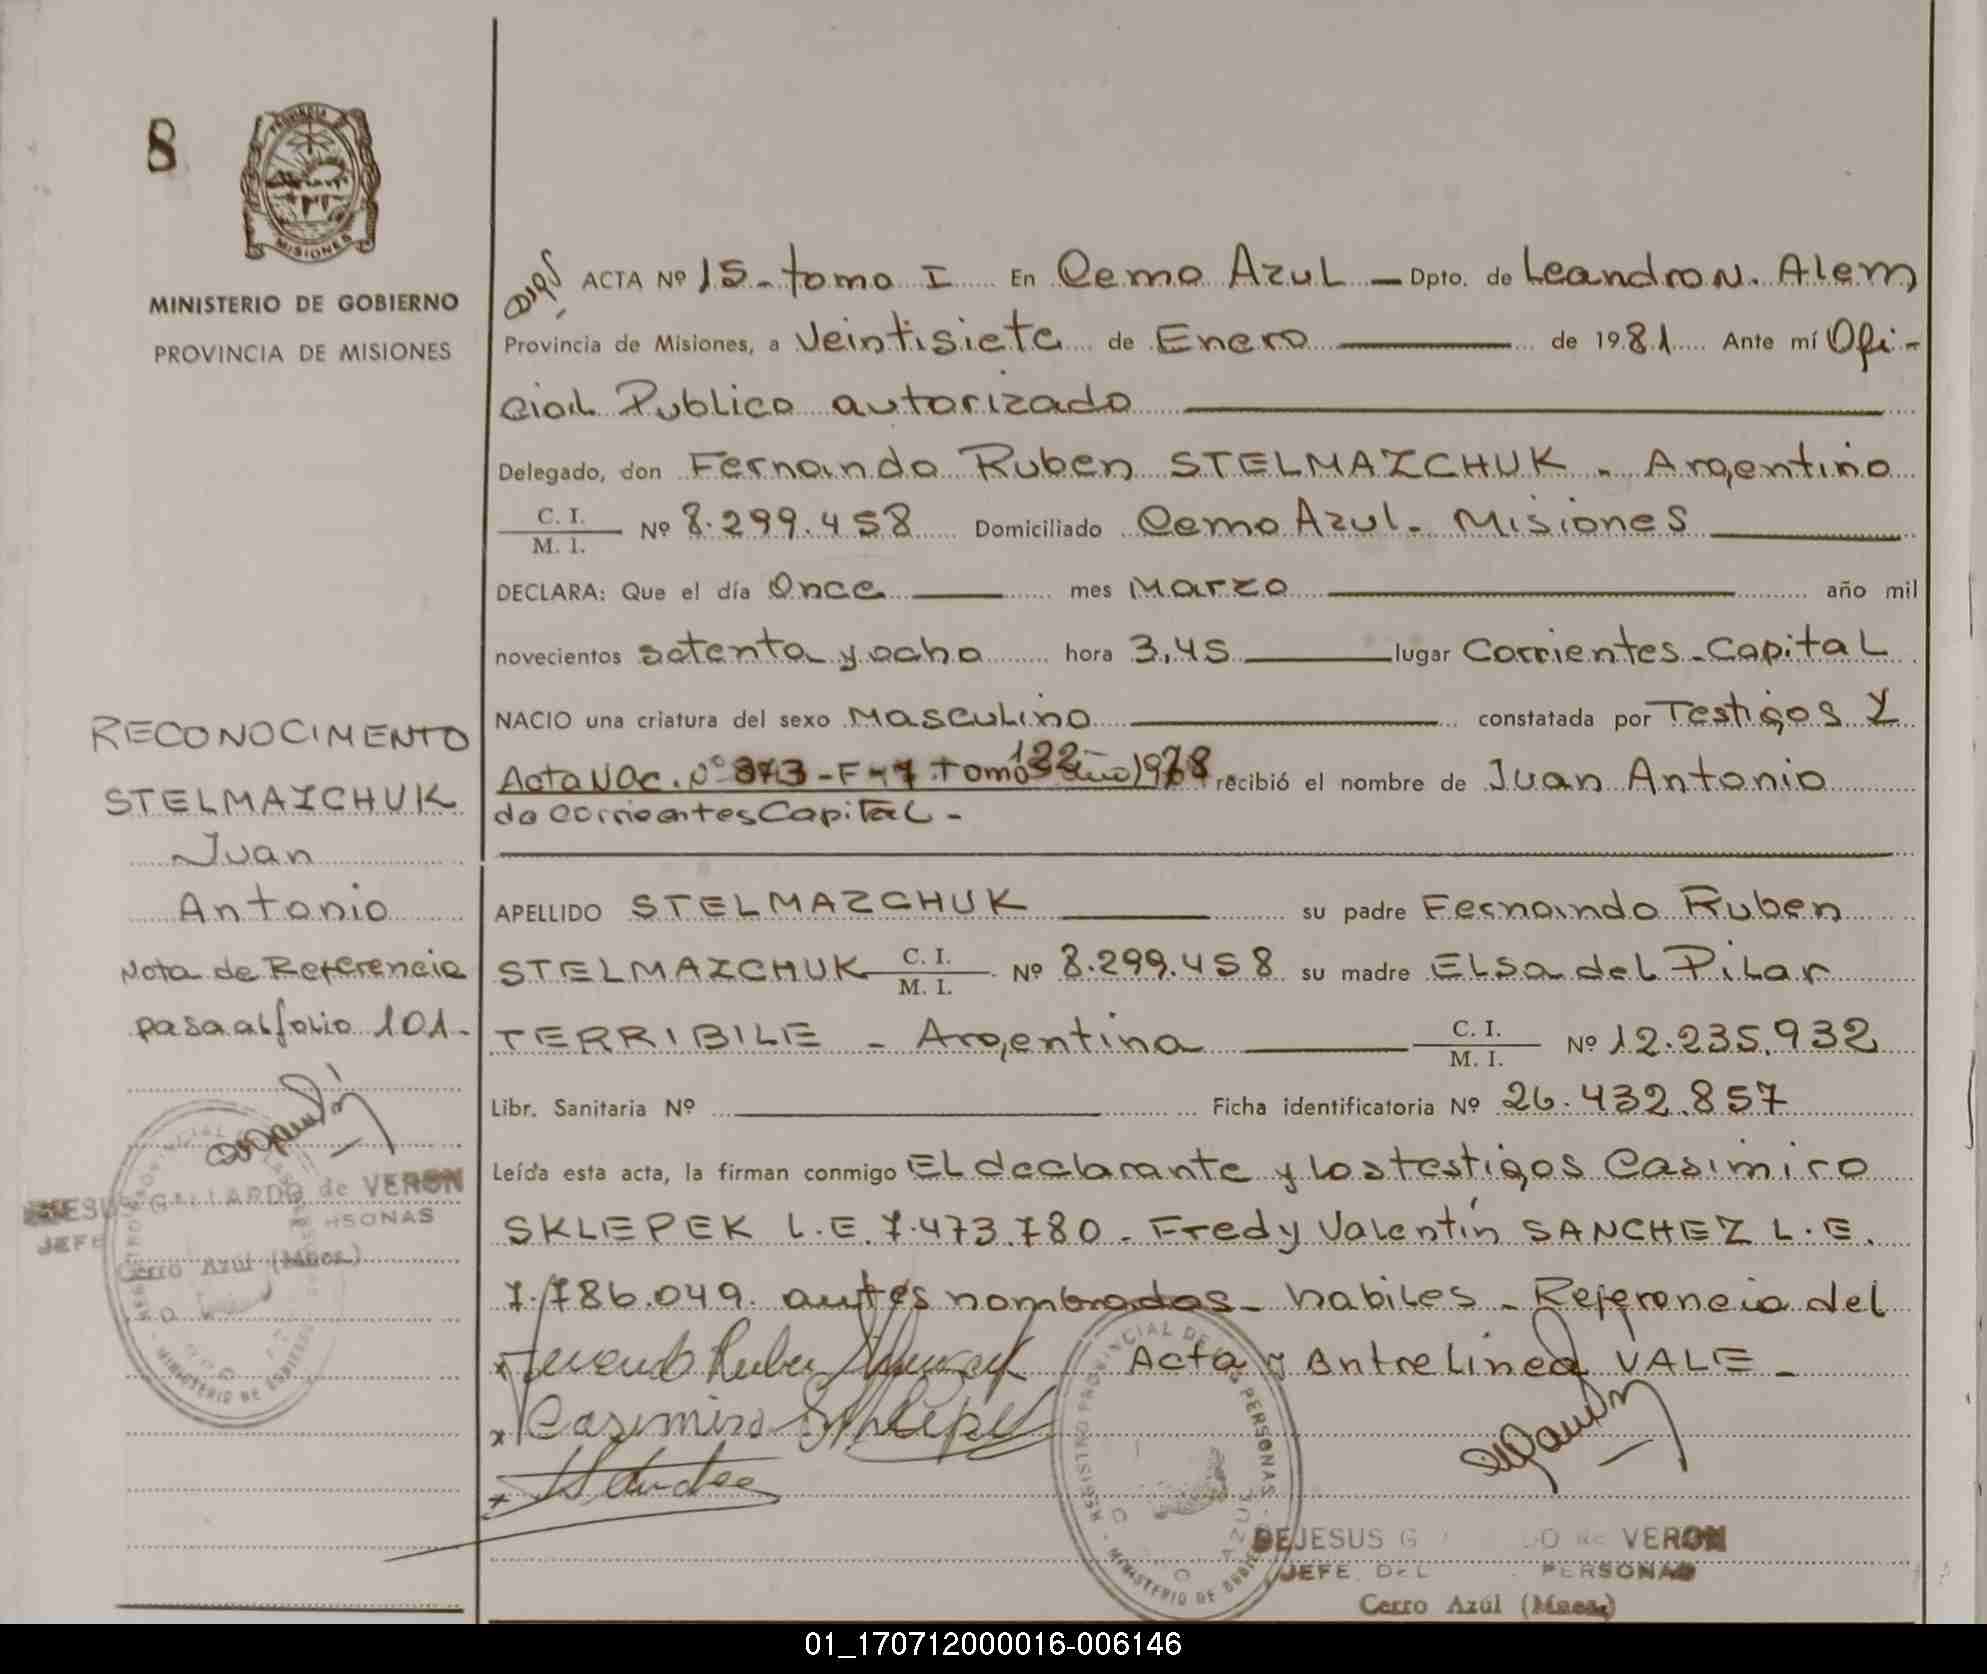 8
PROVINCIA DE
MISIONES
MINISTERIO DE GOBIERNO
PROVINCIA DE MISIONES
ACTA Nº 15 - tomo I En Cerro Azul — Dpto. de Leandro N. Alem
Provincia de Misiones, a Veintisiete de Enero de 1981 Ante mí Ofi-
cial Publico autorizado
Delegado, don Fernando Ruben STELMAZCHUK - Argentino
C. I.
M. I. Nº 8.299.458 Domiciliado Cerro Azul - Misiones
DECLARA: Que el día Once mes Marzo año mil
novecientos setenta y ocho hora 3,45 lugar Corrientes - Capital
NACIO una criatura del sexo Masculino constatada por Testigos y
Acta Nac. Nº 373 - F-7 Tomo 122 año 1978 recibió el nombre de Juan Antonio
de Corrientes Capital -
RECONOCIMENTO
STELMAZCHUK
Juan
Antonio
Nota de Referencia
pasa al folio 101 -
APELLIDO STELMAZCHUK su padre Fernando Ruben
STELMAZCHUK C. I.
M. I. Nº 8.299.458 su madre Elsa del Pilar
TERRIBILE - Argentina C. I.
M. I. Nº 12.235.932
Libr. Sanitaria Nº Ficha identificatoria Nº 26.432.857
Leída esta acta, la firman conmigo El declarante y los testigos Casimiro
SKLEPEK L.E. 7.473.780 - Fredy Valentín SANCHEZ L.E.
7.786.049. antes nombrados - habiles - Referencia del
Acta y Entrelinea VALE -
Fernando Ruben
Casimiro Sklepek
JESUS GALLARDO de VERON
JEFE PERSONAS
Cerro Azúl (Mnes.)
MINISTERIO DE GOBIERNO
REGISTRO PROVINCIAL DE LAS PERSONAS
MINISTERIO DE GOBIERNO
AZUL
DEJESUS G DO de VERON
JEFE DEL PERSONAS
Cerro Azúl (Mnes.)
01_170712000016-006146